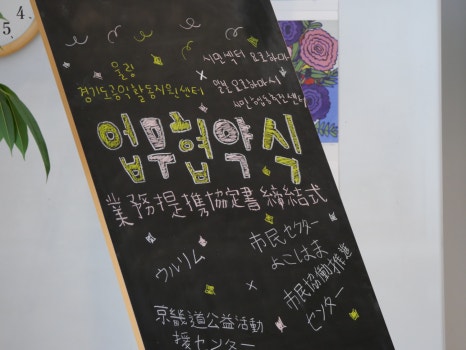 4
5
울림
경기도공익활동지원센터
시민섹터 요코하마
×
요코하마시
시민협동추진센터
업무협약식
業務提携協定書締結式
ウルリム
×
京畿道公益活動
援センター
市民セクター
よこはま
市民協働推進
センター